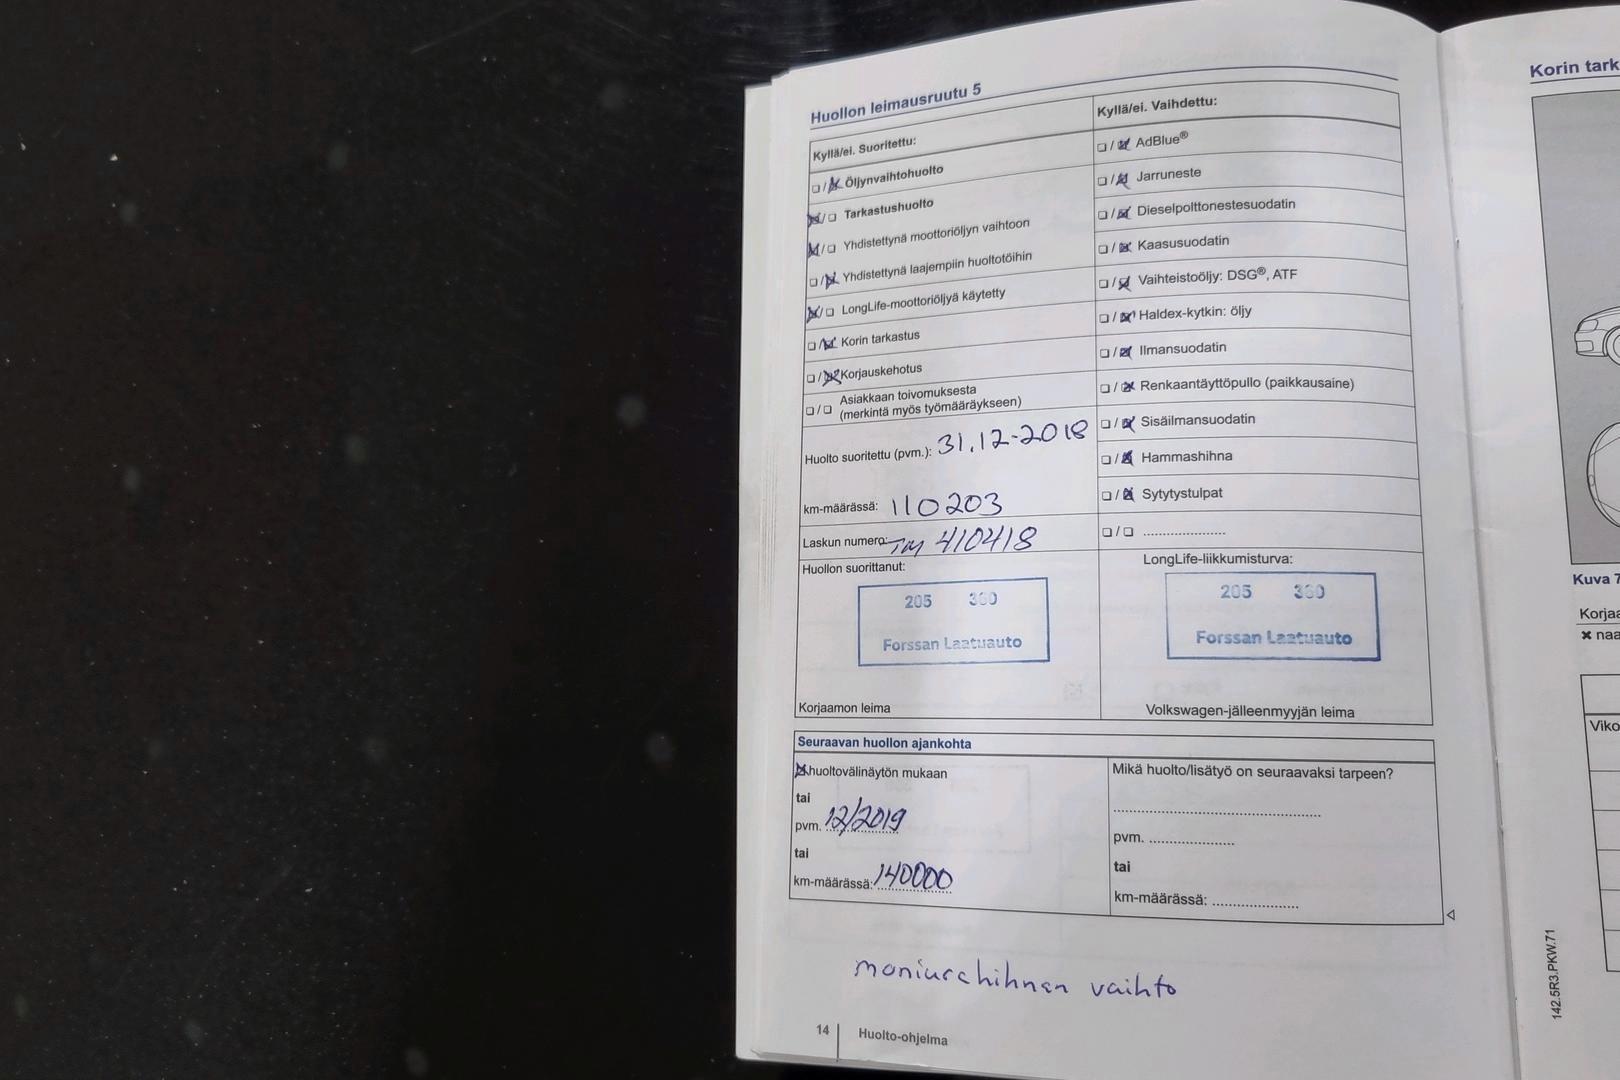 Huollon leimausruutu 5
Kyllä/ei. Suoritettu:
☐/☒ Öljynvaihtohuolto
☒/☐ Tarkastushuolto
☒/☐ Yhdistettynä moottoriöljyn vaihtoon
☐/☒ Yhdistettynä laajempiin huoltotöihin
☒/☐ LongLife-moottoriöljyä käytetty
☐/☒ Korin tarkastus
☐/☒ Korjauskehotus
☐/☐ Asiakkaan toivomuksesta
(merkintä myös työmääräykseen)
Huolto suoritettu (pvm.): 31.12-2018
km-määrässä: 110203
Laskun numero: TM 410418
Huollon suorittanut:
205 360
Forssan Laatuauto
Korjaamon leima
Kyllä/ei. Vaihdettu:
☐/☒ AdBlue®
☐/☒ Jarruneste
☐/☒ Dieselpolttonestesuodatin
☐/☒ Kaasusuodatin
☐/☒ Vaihteistoöljy: DSG®, ATF
☐/☒ Haldex-kytkin: öljy
☐/☒ Ilmansuodatin
☐/☒ Renkaantäyttöpullo (paikkausaine)
☐/☒ Sisäilmansuodatin
☐/☒ Hammashihna
☐/☒ Sytytystulpat
☐/☐ ......................
LongLife-liikkumisturva:
205 360
Forssan Laatuauto
Volkswagen-jälleenmyyjän leima
Seuraavan huollon ajankohta
☒ huoltovälinäytön mukaan
tai
pvm. 12/2019
tai
km-määrässä: 140000
Mikä huolto/lisätyö on seuraavaksi tarpeen?
......................
pvm. ......................
tai
km-määrässä: ......................
moniurahihnan vaihto
14 Huolto-ohjelma
Korin tark
Kuva 7
Korjaa
✖ naa
Viko
142.5R3.PKW.71